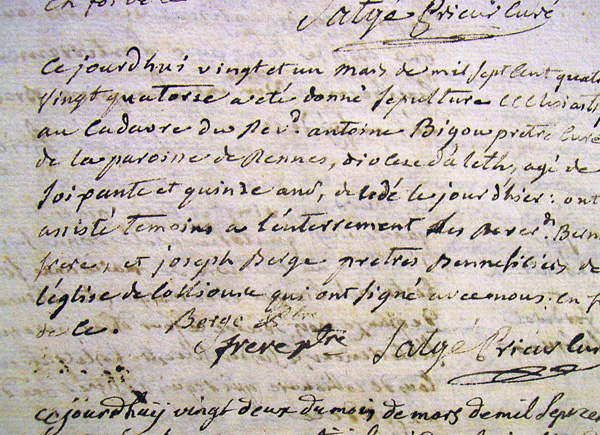 en foi de ce
Salgé Prieur Curé
Ce jourdhui vingt et un mars de mil sept cent quat
vingt quatorse a eté donné sepulture ecclesiast
au Cadavre du Rev.d antoine Bigou pretre curé
de la paroisse de Rennes, diocese d'aleth, agé de
soipante et quinze ans, decedé le jour dhier: ont
assisté temoins a l'enterrement des Rever.ds Bern
frere, et joseph Berge pretres Benneficiers de
l'église de Collioure qui ont signé avec nous. en f
de ce. Berge ptre
frere ptre Salgé Prieur Cur
ce jourdhuij vingt deux du mois de mars de mil sept cen